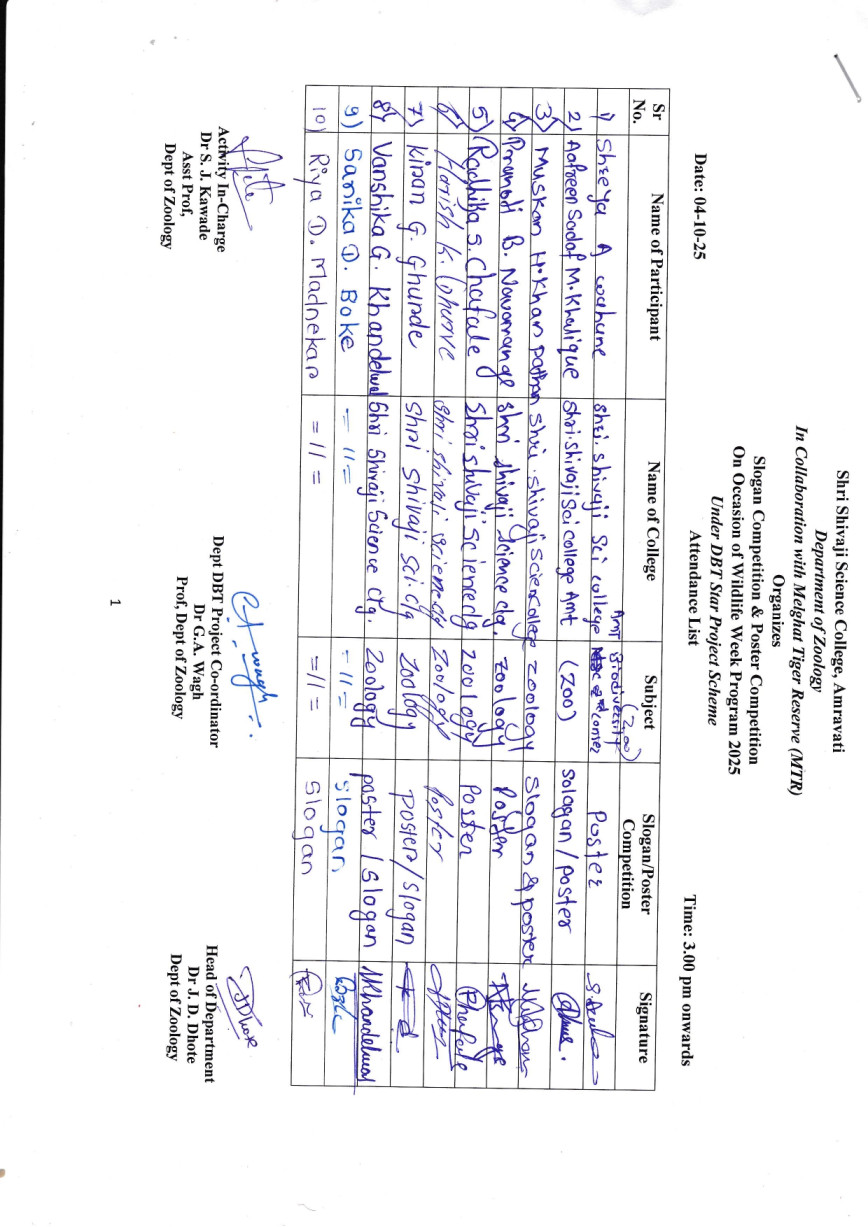 Shri Shivaji Science College, Amravati
Department of Zoology
In Collaboration with Melghat Tiger Reserve (MTR)
Organizes
Slogan Competition & Poster Competition
On Occasion of Wildlife Week Program 2025
Under DBT Star Project Scheme
Attendance List
Date: 04-10-25 Time: 3.00 pm onwards
Sr No. Name of Participant Name of College Subject Slogan/Poster Competition Signature
1) Shreya A Shri. Shivaji Sci college Amt Biodiversity (Zoo) Poster
2) Aafreen Sadaf M. Khalique Shri. Shivaji Sci college Amt (Zoo) Sologan/Poster
3) Muskan H. Khan pathan Shri. Shivaji Science College zoology Slogan & poster
4) B. Nawarange Shri Shivaji Science clg. zoology Poster
5) Radhika S. Chafale Shri Shivaji Science clg zoology Poster
6) Harish K. Dhurve Shri Shivaji Science clg Zoology Poster
7) Kiran G. Ghunde Shri Shivaji Sci clg Zoology poster/slogan
8) Vanshika G. Khandelwal Shri Shivaji Science clg. Zoology poster / Slogan Khandelwal
9) Sanika D. Boke =11= =11= Slogan
10) Riya D. Madnekar =11= =11= Slogan
Activity In-Charge
Dr S. J. Kawade
Asst Prof,
Dept of Zoology
Dept DBT Project Co-ordinator
Dr G.A. Wagh
Prof, Dept of Zoology
JDhote
Head of Department
Dr J. D. Dhote
Dept of Zoology
1